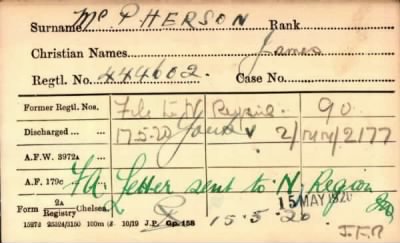 Surname McPHERSON Rank
Christian Names James
Regtl. No. 444602. Case No.
Former Regtl. Nos. File 90
Discharged 17.5.20 2/MM/2177
A.F.W. 3972A
A.F. 179c FA Letter sent to N Region
15 MAY 1920
Form 2A Registry Chelsea. 15-5-20
15272 25324/3150 100m (5) 10/19 J.P. Gp. 158